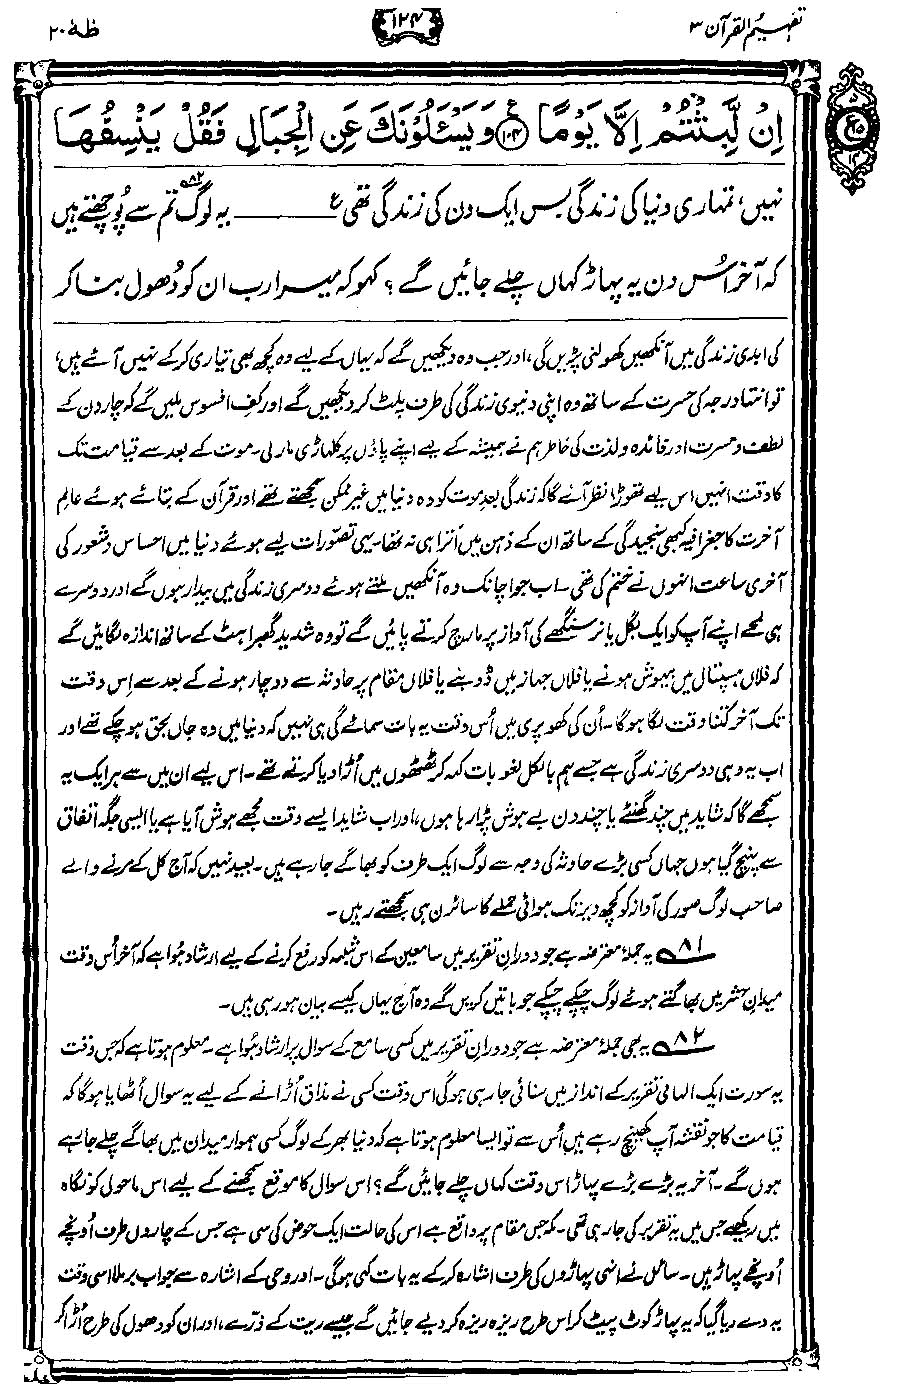 تفہیم القرآن ۳
۱۲۴
طٰہٰ ۲۰
اِنْ لَّبِثْتُمْ اِلَّا يَوْمًا ﴿۱۰۴﴾ وَيَسْـَٔلُوْنَكَ عَنِ الْجِبَالِ فَقُلْ يَنْسِفُهَا
نہیں، تمہاری دنیا کی زندگی بس ایک دن کی زندگی تھی ؏ یہ لوگ ۸۲ تم سے پُوچھتے ہیں
کہ آخر اُس دن یہ پہاڑ کہاں چلے جائیں گے؟ کہو کہ میرا رب ان کو دُھول بنا کر
کی ابدی زندگی میں آنکھیں کھولنی پڑیں گی، اور جب وہ دیکھیں گے کہ یہاں کے لیے وہ کچھ بھی تیاری کرکے نہیں آئے ہیں،
تو انتہا درجہ کی حسرت کے ساتھ وہ اپنی دنیوی زندگی کی طرف پلٹ کر دیکھیں گے اور کفِ افسوس ملیں گے کہ چار دن کے
لطف و مسرت اور فائدہ و لذت کی خاطر ہم نے ہمیشہ کے لیے اپنے پاؤں پر کلہاڑی مار لی۔ موت کے بعد سے قیامت تک
کا وقت انہیں اس لیے تھوڑا نظر آئے گا کہ زندگی بعدِ موت کو وہ دنیا میں غیر ممکن سمجھتے تھے اور قرآن کے بتائے ہوئے عالمِ
آخرت کا جغرافیہ کبھی سنجیدگی کے ساتھ ان کے ذہن میں اُترا ہی نہ تھا۔ یہی تصوّرات لیے ہوئے دنیا میں احساس و شعور کی
آخری ساعت انہوں نے ختم کی تھی۔ اب جو اچانک وہ آنکھیں ملتے ہوئے دوسری زندگی میں بیدار ہوں گے اور دوسرے
ہی لمحے اپنے آپ کو ایک بگل یا نرسنگھے کی آواز پر مارچ کرتے پائیں گے تو وہ شدید گھبراہٹ کے ساتھ اندازہ لگائیں گے
کہ فلاں ہسپتال میں بیہوش ہونے یا فلاں جہاز میں ڈوبنے یا فلاں مقام پر حادثہ سے دوچار ہونے کے بعد سے اِس وقت
تک آخر کتنا وقت لگا ہوگا۔ اُن کی کھوپری میں اُس وقت یہ بات سمائے گی ہی نہیں کہ دنیا میں وہ جاں بحق ہو چکے تھے اور
اب یہ وہی دوسری زندگی ہے جسے ہم بالکل لغو بات کہہ کر ٹھٹھوں میں اُڑا دیا کرتے تھے۔ اس لیے ان میں سے ہر ایک یہ
سمجھے گا کہ شاید میں چند گھنٹے یا چند دن بے ہوش پڑا رہا ہوں، اور اب شاید ایسے وقت مجھے ہوش آیا ہے یا ایسی جگہ اتفاق
سے پہنچ گیا ہوں جہاں کسی بڑے حادثہ کی وجہ سے لوگ ایک طرف کو بھاگے جا رہے ہیں۔ بعید نہیں کہ آج کل کے مرنے والے
صاحب لوگ صور کی آواز کو کچھ دیر تک ہوائی حملے کا سائرن ہی سمجھتے رہیں۔
۸۱ یہ جملۂ معترضہ ہے جو دورانِ تقریر میں سامعین کے اس شبہہ کو رفع کرنے کے لیے ارشاد ہوا ہے کہ آخر اُس وقت
میدانِ حشر میں بھاگتے ہوئے لوگ چپکے چپکے جو باتیں کریں گے وہ آج یہاں کیسے بیان ہو رہی ہیں۔
۸۲ یہ بھی جملۂ معترضہ ہے جو دورانِ تقریر میں کسی سامع کے سوال پر ارشاد ہوا ہے۔ معلوم ہوتا ہے کہ جس وقت
یہ سورت ایک الہامی تقریر کے انداز میں سنائی جا رہی ہوگی اس وقت کسی نے مذاق اُڑانے کے لیے یہ سوال اُٹھایا ہوگا کہ
قیامت کا جو نقشہ آپ کھینچ رہے ہیں اُس سے تو ایسا معلوم ہوتا ہے کہ دنیا بھر کے لوگ کسی ہموار میدان میں بھاگے چلے جا رہے
ہوں گے۔ آخر یہ بڑے بڑے پہاڑ اس وقت کہاں چلے جائیں گے؟ اس سوال کا موقع سمجھنے کے لیے اس ماحول کو نگاہ
میں رکھیے جس میں یہ تقریر کی جا رہی تھی۔ مکہ جس مقام پر واقع ہے اس کی حالت ایک حوض کی سی ہے جس کے چاروں طرف اُونچے
اُونچے پہاڑ ہیں۔ سائل نے انہی پہاڑوں کی طرف اشارہ کرکے یہ بات کہی ہوگی۔ اور وحی کے اشارہ سے جواب برملا اسی وقت
یہ دے دیا گیا کہ یہ پہاڑ کوٹ پیٹ کر اس طرح ریزہ ریزہ کر دیے جائیں گے جیسے ریت کے ذرّے، اور ان کو دھول کی طرح اُڑا کر